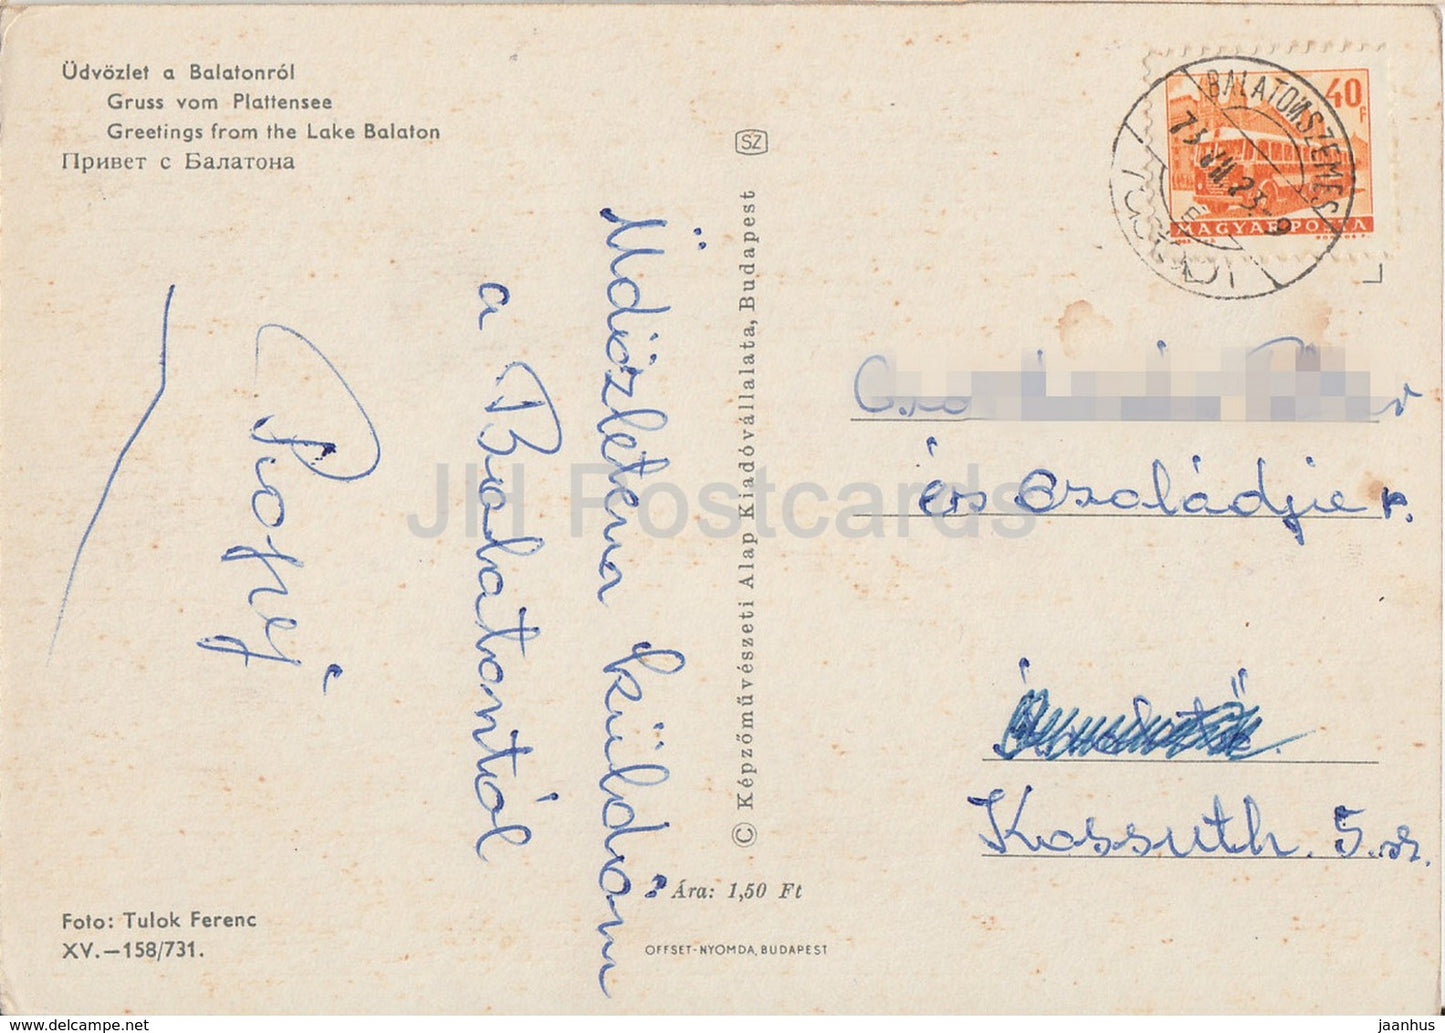 Üdvözlet a Balatonról
Gruss vom Plattensee
Greetings from the Lake Balaton
Привет с Балатона
SZ
Üdvözletem küldöm
a Balatontól
Foto: Tulok Ferenc
XV.—158/731.
© Képzőművészeti Alap Kiadóvállalata, Budapest
Ára: 1,50 Ft
OFFSET-NYOMDA, BUDAPEST
BALATONSZEMES
40 F
MAGYAR POSTA
és családja r.
Kossuth. 5. sz.
JH Postcards
HipPostcard.com
jaanhus